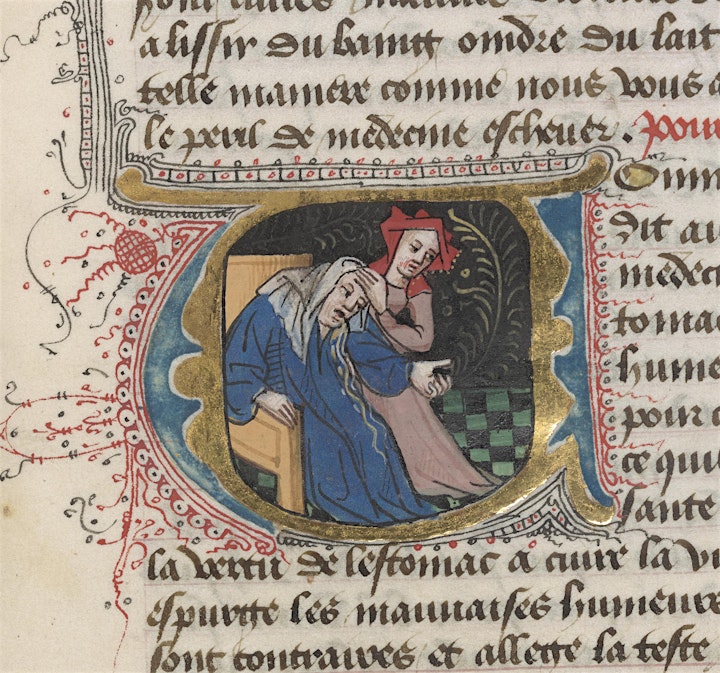 a lissir du baing oindre du lait
telle maniere comme nous vous a
le peril de medecine eschever . pour
dit au
medeci
tomac
hume
pour
ce qui
sante
la vertu de lestomac a cuire la vi
espurge les mauvaises humeur
sont contraires et allege la teste